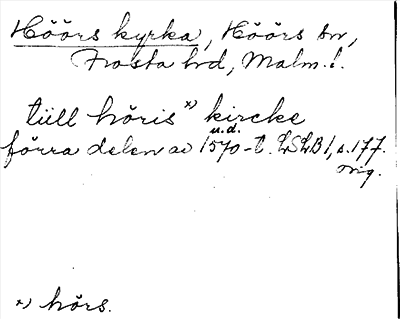 Höörs kyrka, Höörs sn,
Frosta hd, Malm. l.
tiill höris x) kircke
u.d.
förra delen av 1570-t. LSLB 1, s. 177.
orig.
x) hörs.